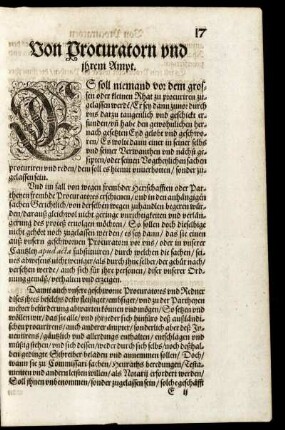 17
Von Procuratorn vnd
jhrem Ampt.
ES soll niemand vor dem gros-
sen oder kleinen Rhat zu procuriren zu-
gelassen werd / Er sey dann zuuor durch
vns darzu taugenlich vnd geschickt er-
funden / vnd habe den gewohnlichen her-
nach gesetzten Eyd gelobt vnd geschwo-
ren / Es wolte dann einer in seiner selbs
vnd seiner Verwanthen vnd nächst ge-
sipten / oder seinen Vogtbarlichen sachen
procuriren vnd reden / dem soll es hiemit vnuerbotten / sonder zu-
gelassen sein.
Vnd im fall von wegen frembder Herschafften oder Par-
theyen frembde Procuratores erschienen / vnd in den anhängigen
sachen Gerichtlich / von derselben wegen zuhandlen begeren wür-
den / darauß gleichwol nicht geringe vnrichtigkeiten vnd verlän-
gerung des proceß eruolgen möchten / So sollen doch dieselbige
nicht gehört noch zugelassen werden / es sey dann / das sie einen
auß vnsern geschwornen Procuratorn vor vns / oder in vnserer
Cantzley apud acta substituiren / durch welchen die sachen / sei-
nes abwesens nicht weniger / als durch jhne selber / der gebür nach /
versehen werde / auch sich für ihre personen / diser vnserer Ord-
nung gemäß / verhalten vnd erzeigen.
Damit auch vnsere geschworne Procuratores vnd Redner
dises jhres beuelchs desto fleissiger / embsiger / vnd zu der Partheyen
mehrer befürderung abwarten können vnd mögen / So setzen vnd
wöllen wir / das sie alle / vnd jhr jeder sich hinfüro deß außländi-
schen procurirens / auch anderer ämpter / sonderlich aber deß In-
uentirens / gäntzlich vnd allerdings enthalten / entschlagen vnd
müßig stehen / vnd sich dessen / weder durch sich selbs / noch deßhal-
ben gedingte Schreiber beladen vnd annemmen sollen / Doch /
wann sie zu Commissari sachen / Heuraths beredungen / Testa-
menten vnd andern leisten willen / als Notarij erfordert werden /
Soll jhnen vnbenommen / sonder zugelassen sein / solche geschäfft
E ij